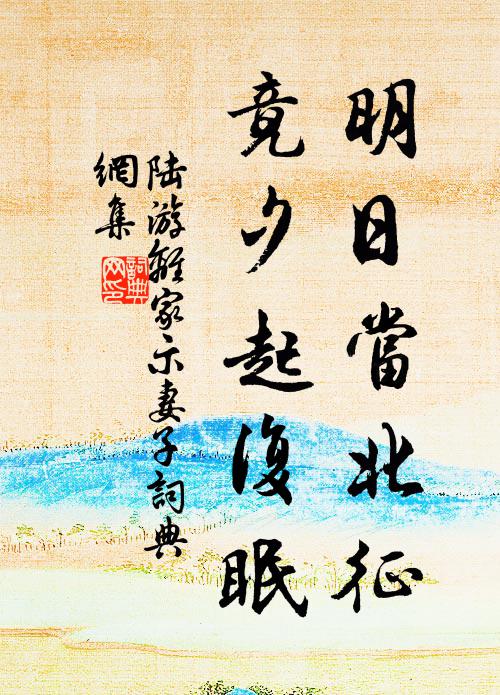 明日當北征
竟夕起復眠
陸游離家示妻子詞典
網集
詞典
网印